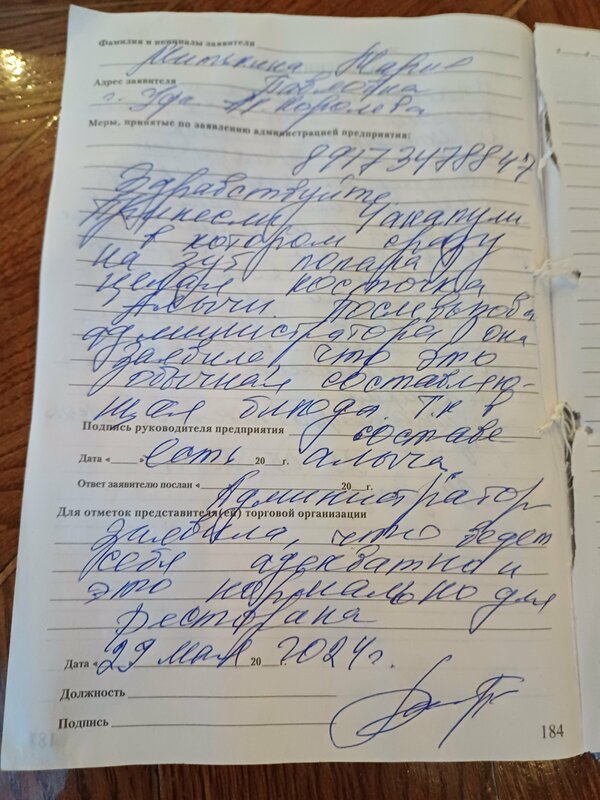 Фамилия и инициалы заявителя
Митькина Мария
Адрес заявителя Павловна
г. Уфа М Королева
Меры, принятые по заявлению администрацией предприятия:
89173478847
Здравствуйте.
Принесли Чакапули
в котором сразу
на зуб попала
целая косточка
Алычи. После вызова
администратора она
заявила, что это
обычная составляю-
щая блюда. Т.к в
Подпись руководителя предприятия составе
Дата «___» есть 20__г. алыча.
Ответ заявителю послан «___ 20__г.
Администратор
Для отметок представителя(ей) торговой организации
заявила, что ведет
себя адекватно и
это нормально для
ресторана
Дата «29 мая 20__г. 2024г.
Должность
Подпись
184